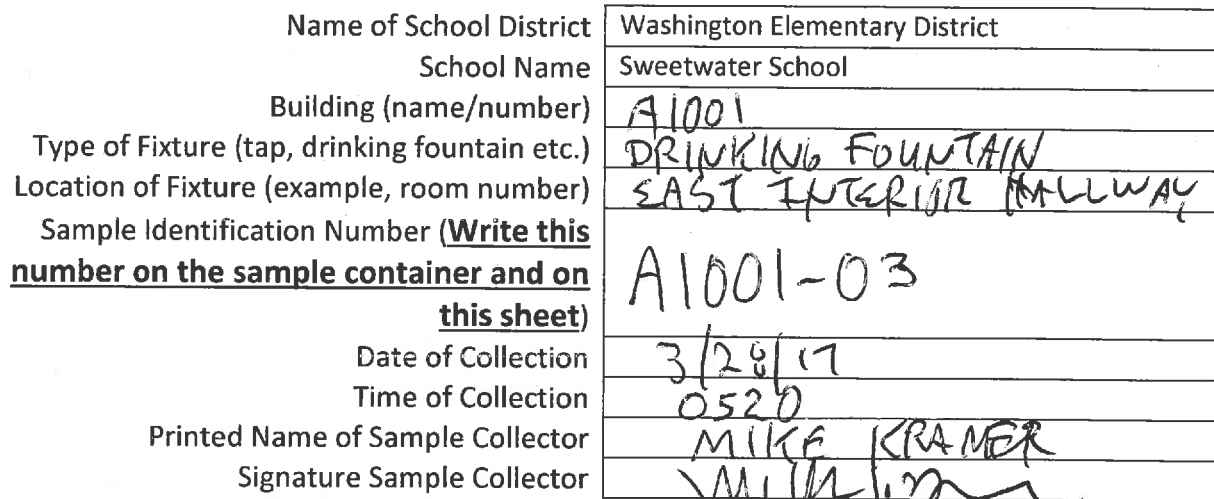 Name of School District Washington Elementary District
School Name Sweetwater School
Building (name/number) A1001
Type of Fixture (tap, drinking fountain etc.) DRINKING FOUNTAIN
Location of Fixture (example, room number) EAST INTERIOR HALLWAY
Sample Identification Number (Write this
number on the sample container and on A1001-03
this sheet)
Date of Collection 3/28/17
Time of Collection 0520
Printed Name of Sample Collector MIKE KRAMER
Signature Sample Collector